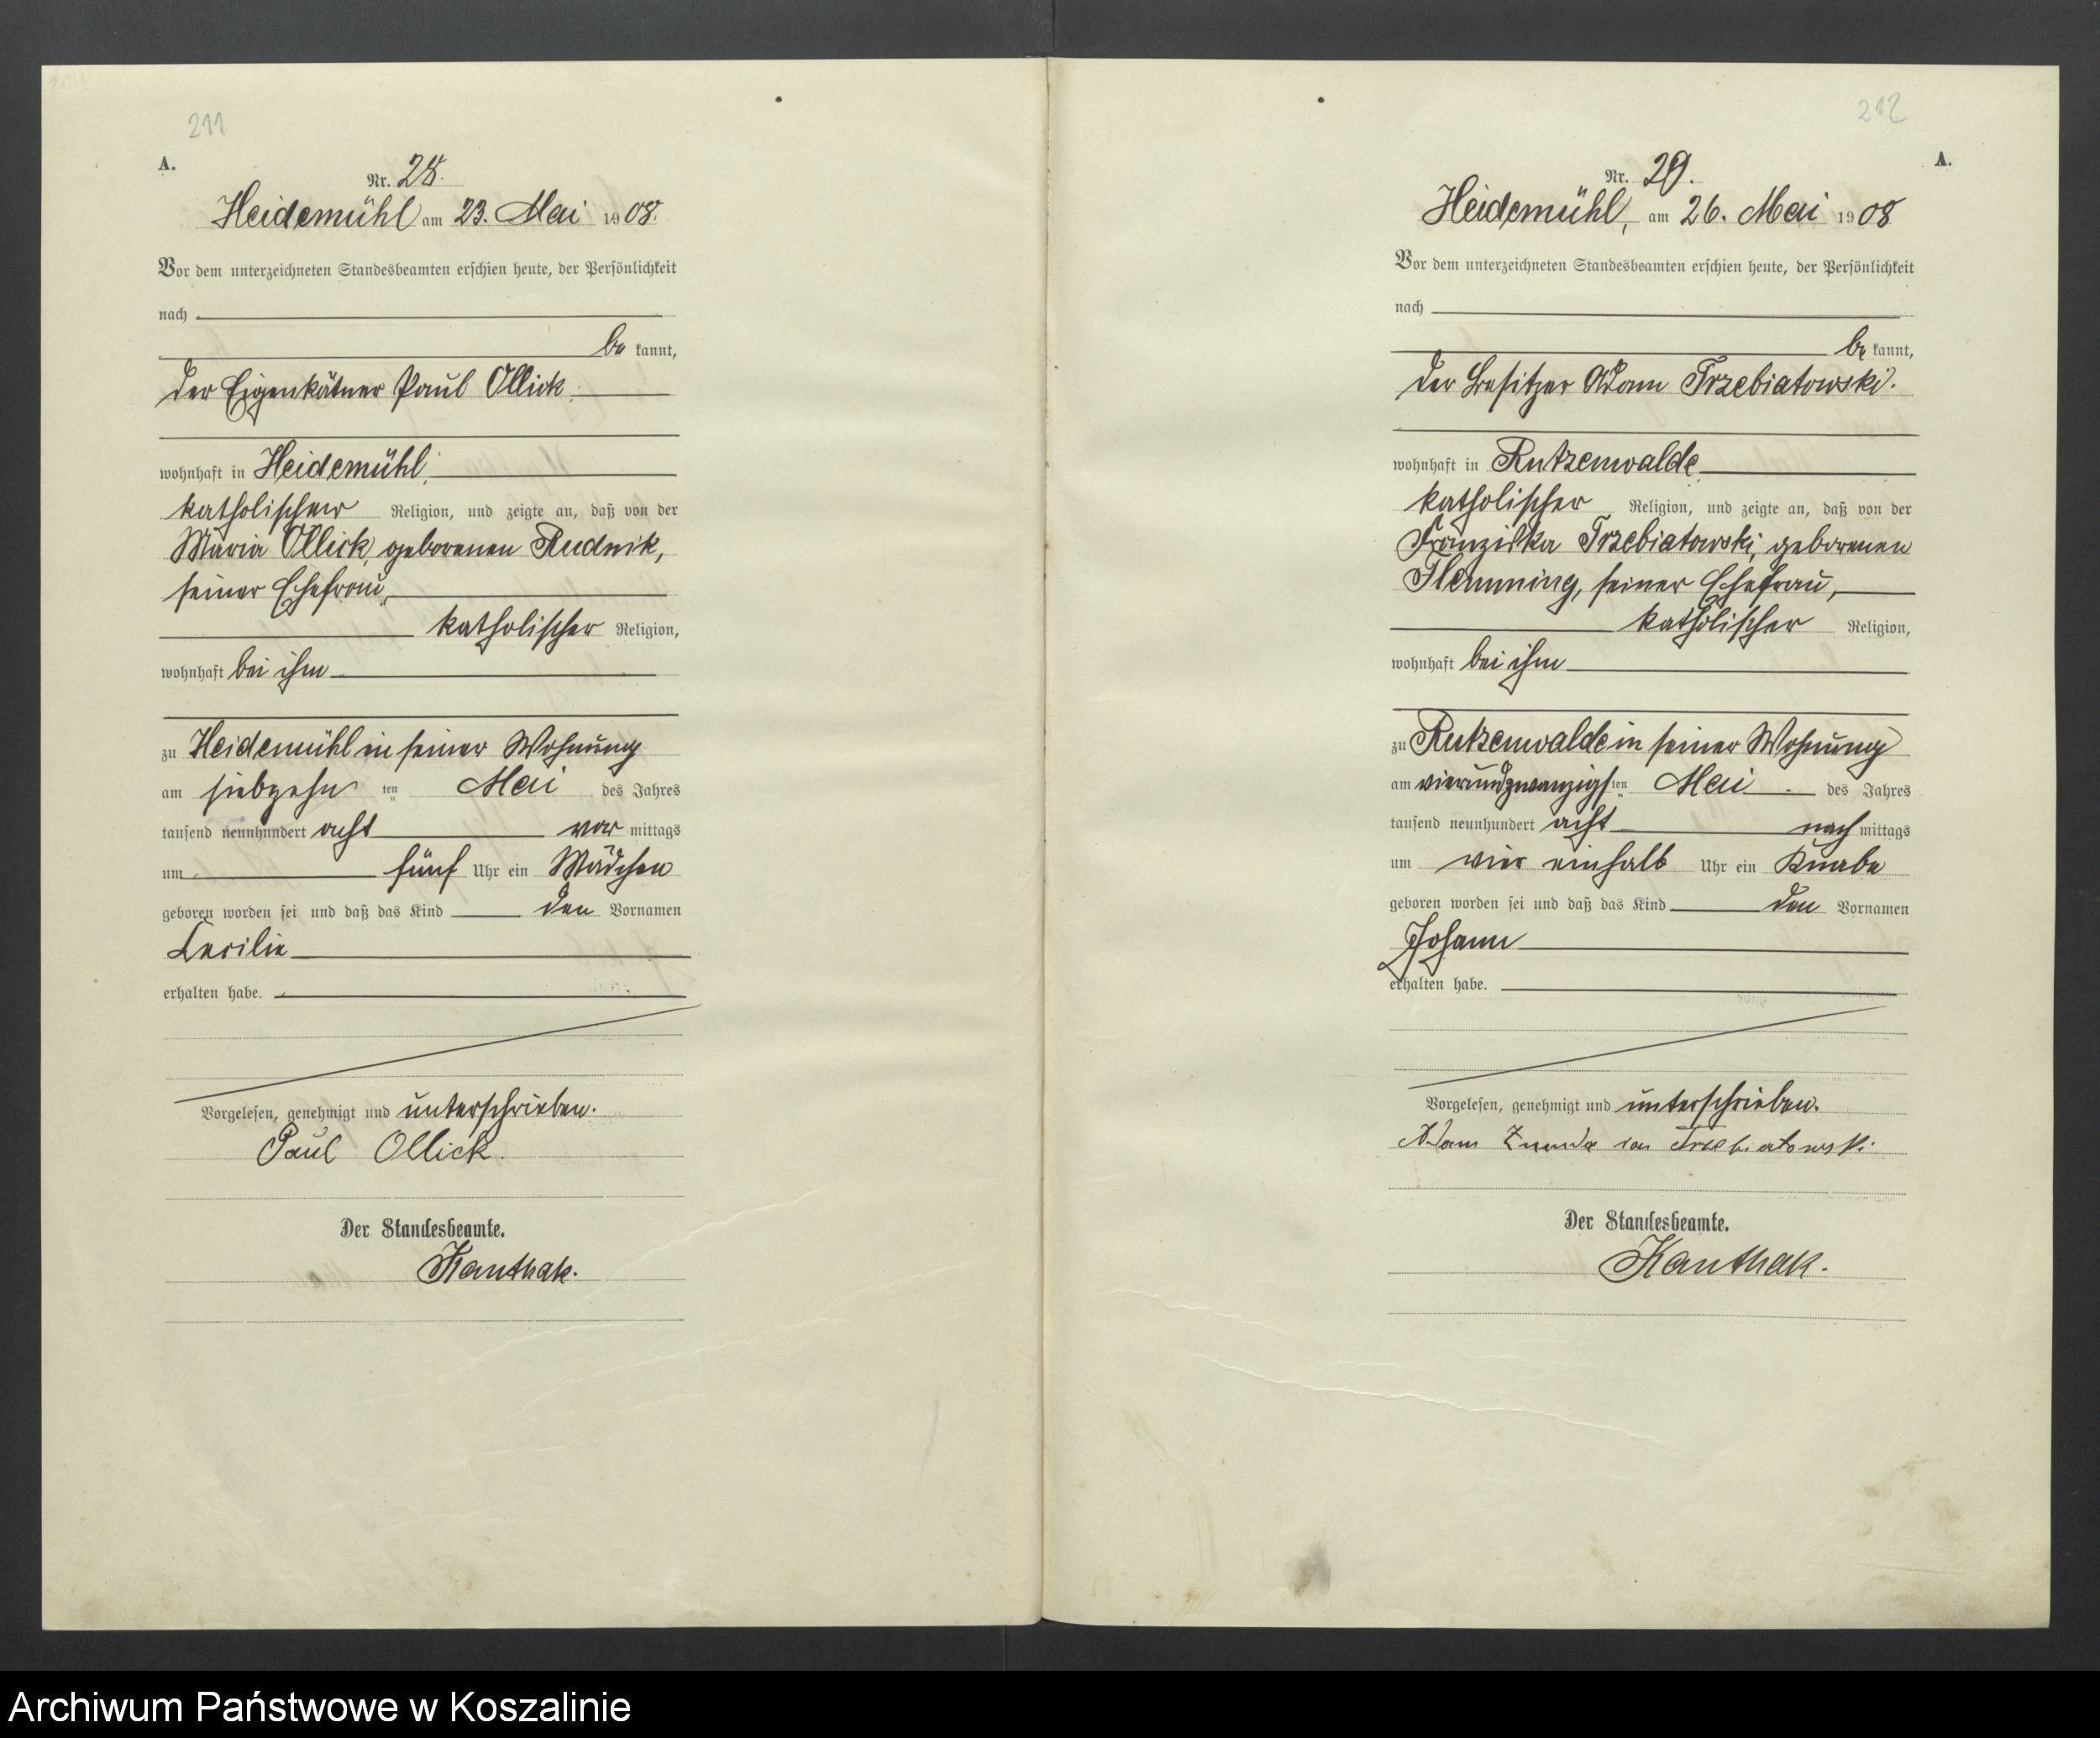 211
A.
Nr. 28.
Heidemühl am 23. Mai 1908.
Vor dem unterzeichneten Standesbeamten erschien heute, der Persönlichkeit
nach
be kannt,
der Eigenkätner Paul Ollick,
wohnhaft in Heidemühl,
katholischer Religion, und zeigte an, daß von der
Maria Ollick, geborenen Rudnik,
seiner Ehefrau,
katholischer Religion,
wohnhaft bei ihm
zu Heidemühl in seiner Wohnung
am siebzehn ten Mai des Jahres
tausend neunhundert acht vor mittags
um fünf Uhr ein Mädchen
geboren worden sei und daß das Kind den Vornamen
Cecilie
erhalten habe.
Vorgelesen, genehmigt und unterschrieben.
Paul Ollick.
Der Standesbeamte.
Kanthak.
212
A.
Nr. 29.
Heidemühl, am 26. Mai 1908
Vor dem unterzeichneten Standesbeamten erschien heute, der Persönlichkeit
nach
be kannt,
der Besitzer Adam Trzebiatowski.
wohnhaft in Rutzenwalde,
katholischer Religion, und zeigte an, daß von der
Franziska Trzebiatowski, geborenen
Flemming, seiner Ehefrau,
katholischer Religion,
wohnhaft bei ihm
zu Rutzenwalde in seiner Wohnung
am vierundzwanzigsten Mai des Jahres
tausend neunhundert acht nach mittags
um vier einhalb Uhr ein Knabe
geboren worden sei und daß das Kind den Vornamen
Johann
erhalten habe.
Vorgelesen, genehmigt und unterschrieben.
Adam von Trzebiatowski
Der Standesbeamte.
Kanthak.
Archiwum Państwowe w Koszalinie